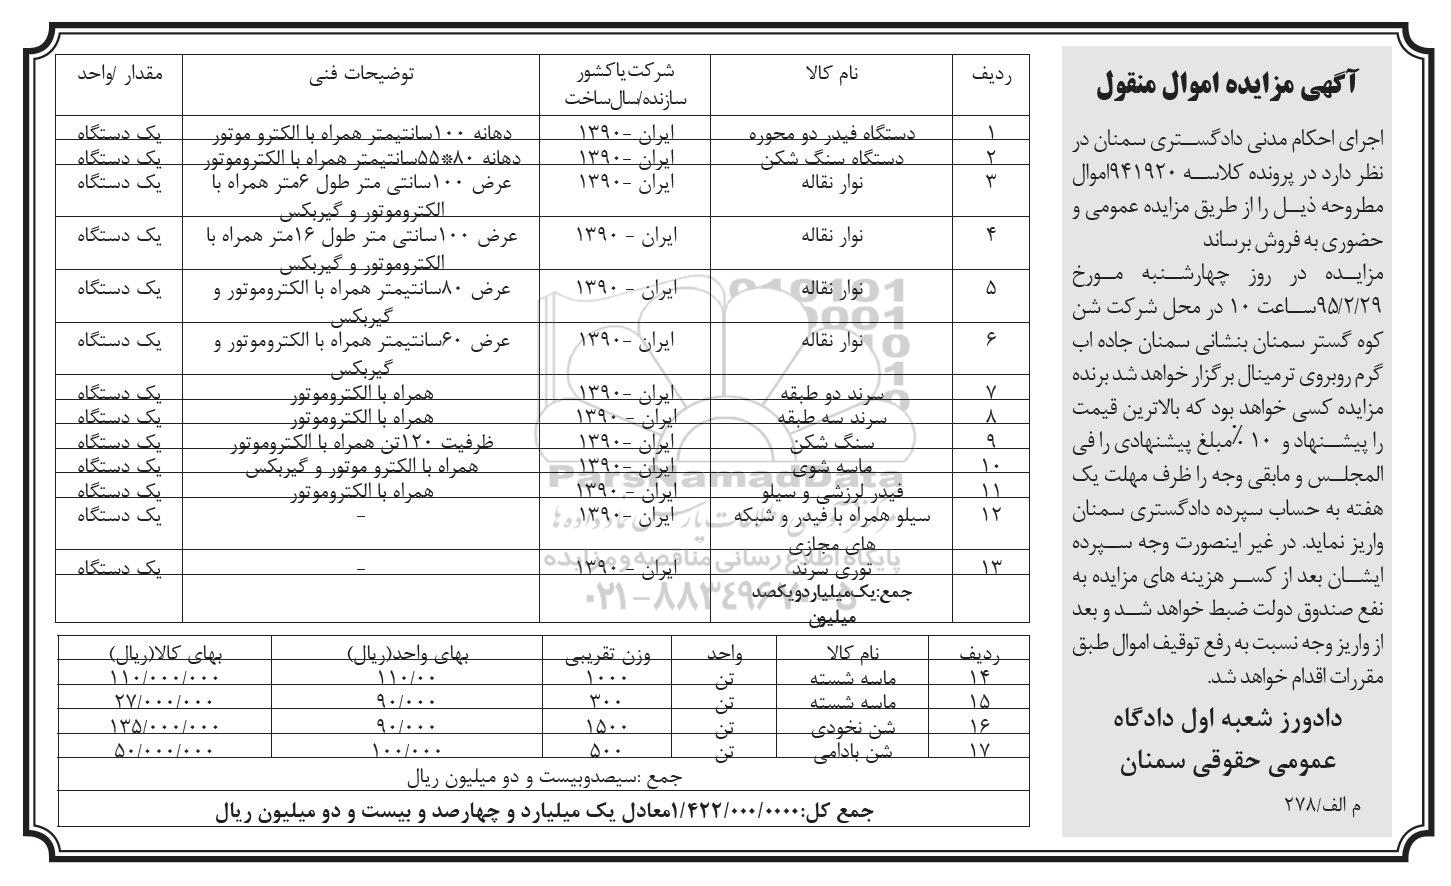 آگهی مزایده اموال منقول
اجرای احکام مدنی دادگستری سمنان در
نظر دارد در پرونده کلاسه ۹۴۱۹۲۰اموال
مطروحه ذیل را از طریق مزایده عمومی و
حضوری به فروش برساند
مزایده در روز چهارشنبه مورخ
۹۵/۲/۲۹ساعت ۱۰ در محل شرکت شن
کوه گستر سمنان بنشانی سمنان جاده اب
گرم روبروی ترمینال برگزار خواهد شد برنده
مزایده کسی خواهد بود که بالاترین قیمت
را پیشنهاد و ۱۰ ٪مبلغ پیشنهادی را فی
المجلس و مابقی وجه را ظرف مهلت یک
هفته به حساب سپرده دادگستری سمنان
واریز نماید. در غیر اینصورت وجه سپرده
ایشان بعد از کسر هزینه های مزایده به
نفع صندوق دولت ضبط خواهد شد و بعد
از واریز وجه نسبت به رفع توقیف اموال طبق
مقررات اقدام خواهد شد.
دادورز شعبه اول دادگاه
عمومی حقوقی سمنان
م الف/۲۷۸
ردیف نام کالا شرکت یا کشور سازنده/سال ساخت توضیحات فنی مقدار /واحد
۱ دستگاه فیدر دو محوره ایران -۱۳۹۰ دهانه ۱۰۰سانتیمتر همراه با الکترو موتور یک دستگاه
۲ دستگاه سنگ شکن ایران -۱۳۹۰ دهانه ۸۰*۵۵سانتیمتر همراه با الکتروموتور یک دستگاه
۳ نوار نقاله ایران -۱۳۹۰ عرض ۱۰۰سانتی متر طول ۶متر همراه با یک دستگاه
الکتروموتور و گیربکس
۴ نوار نقاله ایران - ۱۳۹۰ عرض ۱۰۰سانتی متر طول ۱۶متر همراه با یک دستگاه
الکتروموتور و گیربکس
۵ نوار نقاله ایران - ۱۳۹۰ عرض ۸۰سانتیمتر همراه با الکتروموتور و یک دستگاه
گیربکس
۶ نوار نقاله ایران -۱۳۹۰ عرض ۶۰سانتیمتر همراه با الکتروموتور و یک دستگاه
گیربکس
۷ سرند دو طبقه ایران -۱۳۹۰ همراه با الکتروموتور یک دستگاه
۸ سرند سه طبقه ایران -۱۳۹۰ همراه با الکتروموتور یک دستگاه
۹ سنگ شکن ایران -۱۳۹۰ ظرفیت ۱۲۰تن همراه با الکتروموتور یک دستگاه
۱۰ ماسه شوی ایران -۱۳۹۰ همراه با الکترو موتور و گیربکس یک دستگاه
۱۱ فیدر لرزشی و سیلو ایران - ۱۳۹۰ همراه با الکتروموتور یک دستگاه
۱۲ سیلو همراه با فیدر و شبکه ایران -۱۳۹۰ - یک دستگاه
های مجازی
۱۳ توری سرند ایران -۱۳۹۰ - یک دستگاه
جمع:یک میلیارد و یکصد
میلیون
ردیف نام کالا واحد وزن تقریبی بهای واحد(ریال) بهای کالا(ریال)
۱۴ ماسه شسته تن ۱۰۰۰ ۱۱۰/۰۰ ۱۱۰/۰۰۰/۰۰۰
۱۵ ماسه شسته تن ۳۰۰ ۹۰/۰۰۰ ۲۷/۰۰۰/۰۰۰
۱۶ شن نخودی تن ۱۵۰۰ ۹۰/۰۰۰ ۱۳۵/۰۰۰/۰۰۰
۱۷ شن بادامی تن ۵۰۰ ۱۰۰/۰۰۰ ۵۰/۰۰۰/۰۰۰
جمع :سیصدوبیست و دو میلیون ریال
جمع کل:۱/۴۲۲/۰۰۰/۰۰۰۰معادل یک میلیارد و چهارصد و بیست و دو میلیون ریال
ParsNamadData
پایگاه اطلاع رسانی مناقصه و مزایده
۰۲۱-۸۸۳۴۹۶۷۰-۵